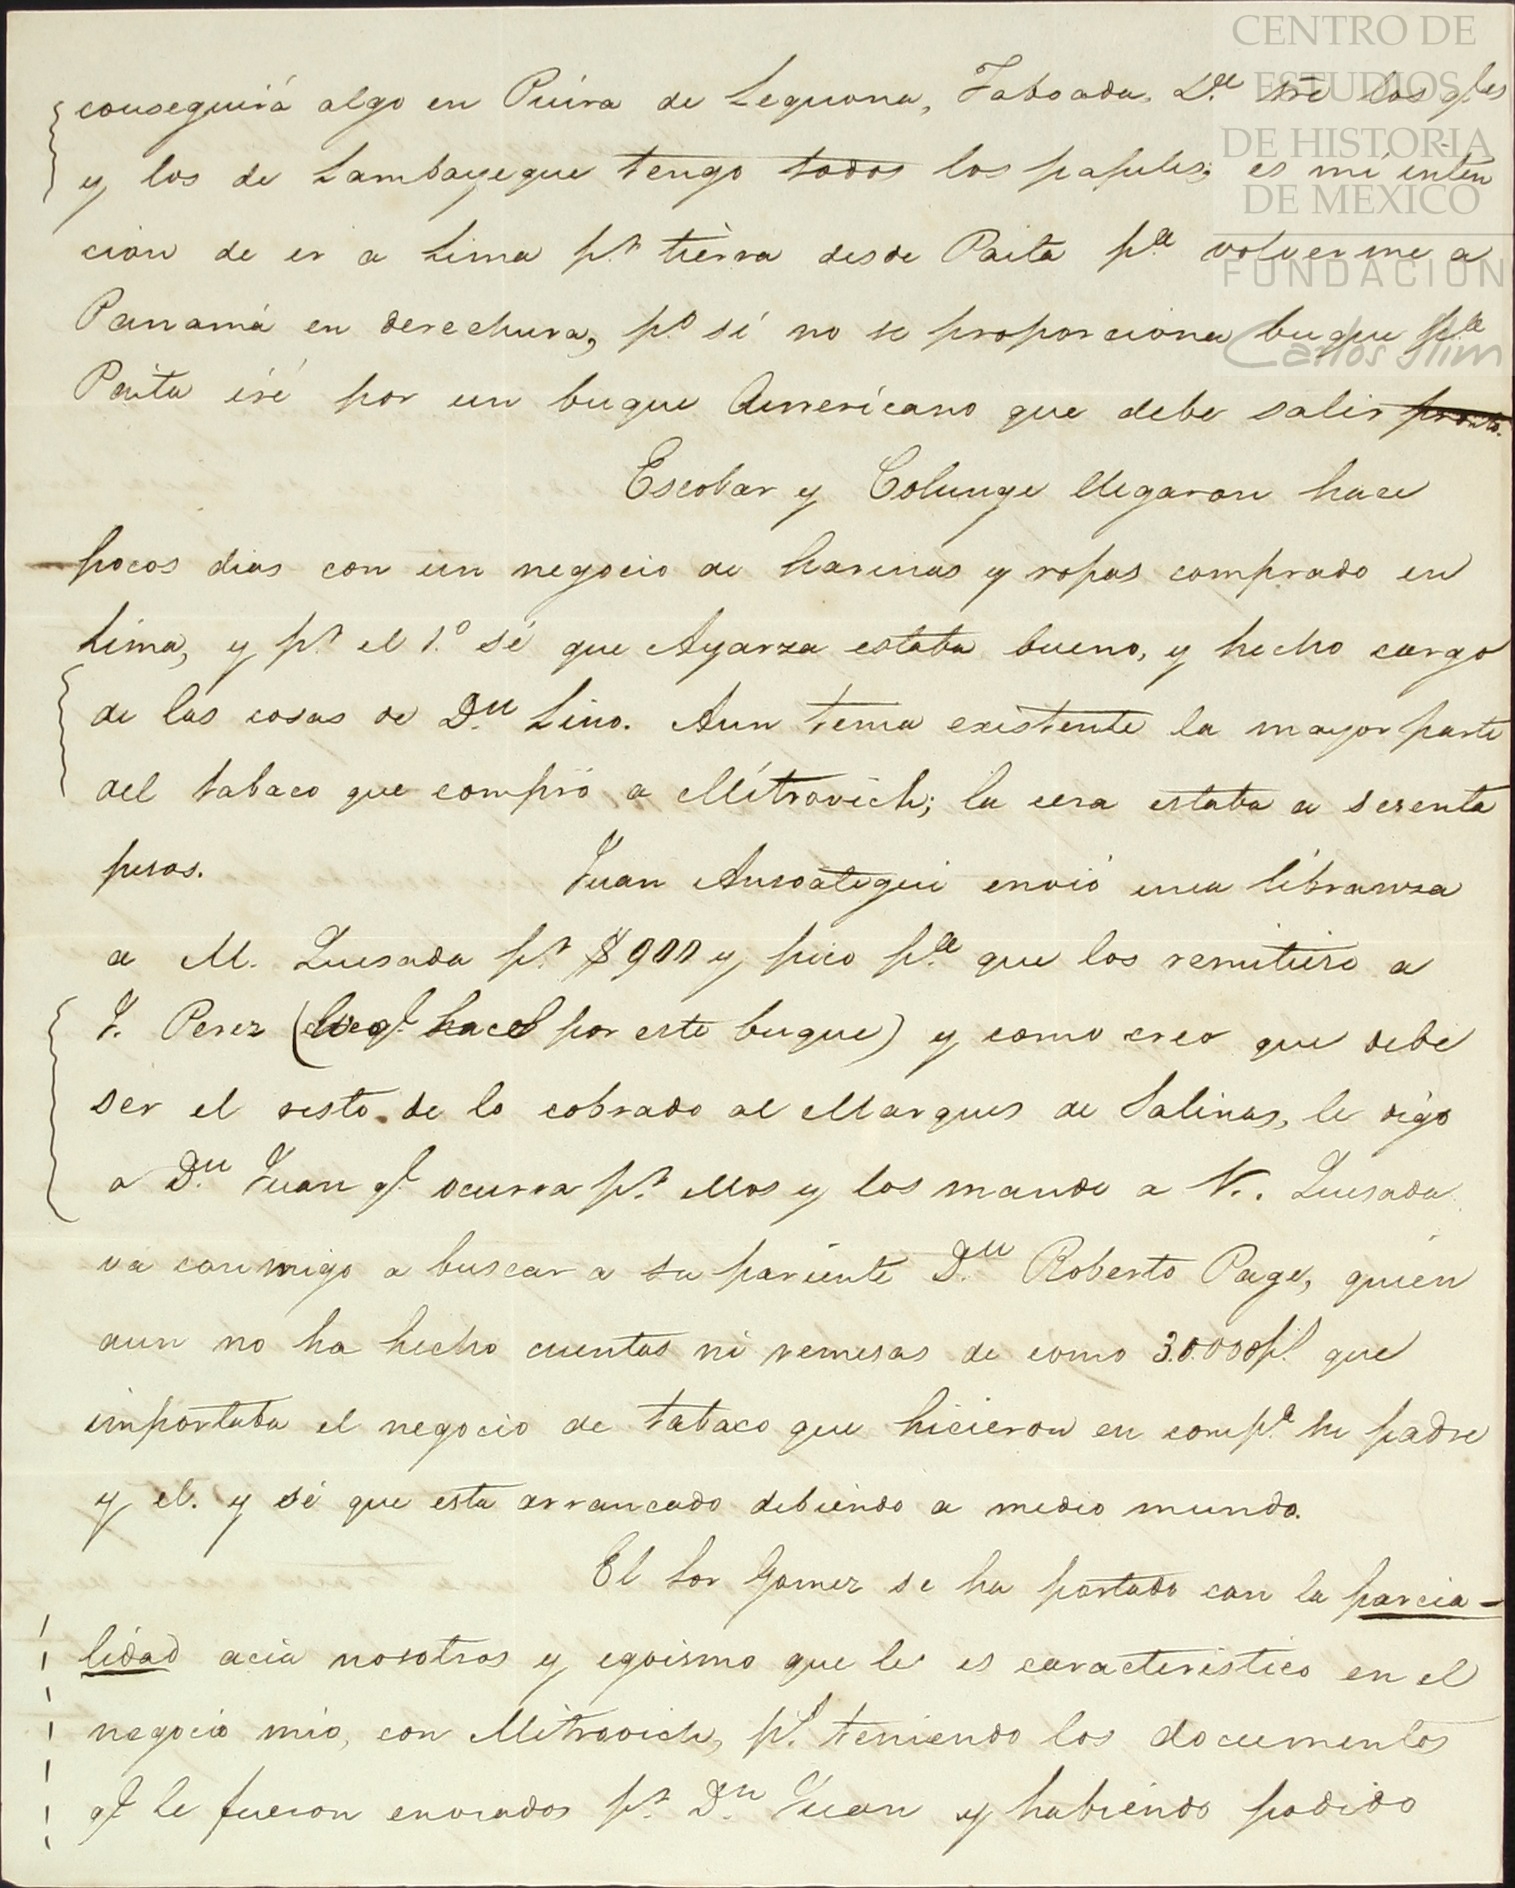 CENTRO DE
ESTUDIOS
DE HISTORIA
DE MEXICO
FUNDACIÓN
Carlos Slim
conseguirá algo en Piura de Leguona, Taboada, los q.les
y los de Lambayeque tengo todos los papeles; es mi inten
cion de ir a Lima p.r tierra desde Paita p.a volverme a
Panamá en derechura, p.o si no se proporciona buque p.a
Paita iré por un buque Americano que debe salir pronto.
Escobar y Colunge llegaron hace
pocos dias con un negocio de harinas y ropas comprado en
Lima, y p.r el 1.o sé que Ayarza estaba bueno, y hecho cargo
de las cosas de D.n Lino. Aun tenia existente la mayor parte
del tabaco que compró a Mitrovich; la cera estaba a sesenta
pesos.
Juan Ansoategui envió una libranza
a M. Quesada p.r $900 y pico p.a que los remitiese a
J. Perez ( hace por este buque) y como creo que debe
ser el resto de lo cobrado al Marques de Salinas, le digo
a D.n Juan q.e ocurra p.r ellos y los mande a V.. Quesada
va conmigo a buscar a su pariente D.n Roberto Page, quien
aun no ha hecho cuentas ni remesas de como 30.000p.s que
importaba el negocio de tabaco que hicieron en comp.a su padre
y el. y sé que esta arrancado debiendo a medio mundo.
El Sor Gomez se ha portado con la parcia-
lidad acia nosotros y egoismo que le es caracteristico en el
negocio mio, con Mitrovich, p.s teniendo los documentos
q.e le fueron enviados p.r D.n Juan y habiendo podido